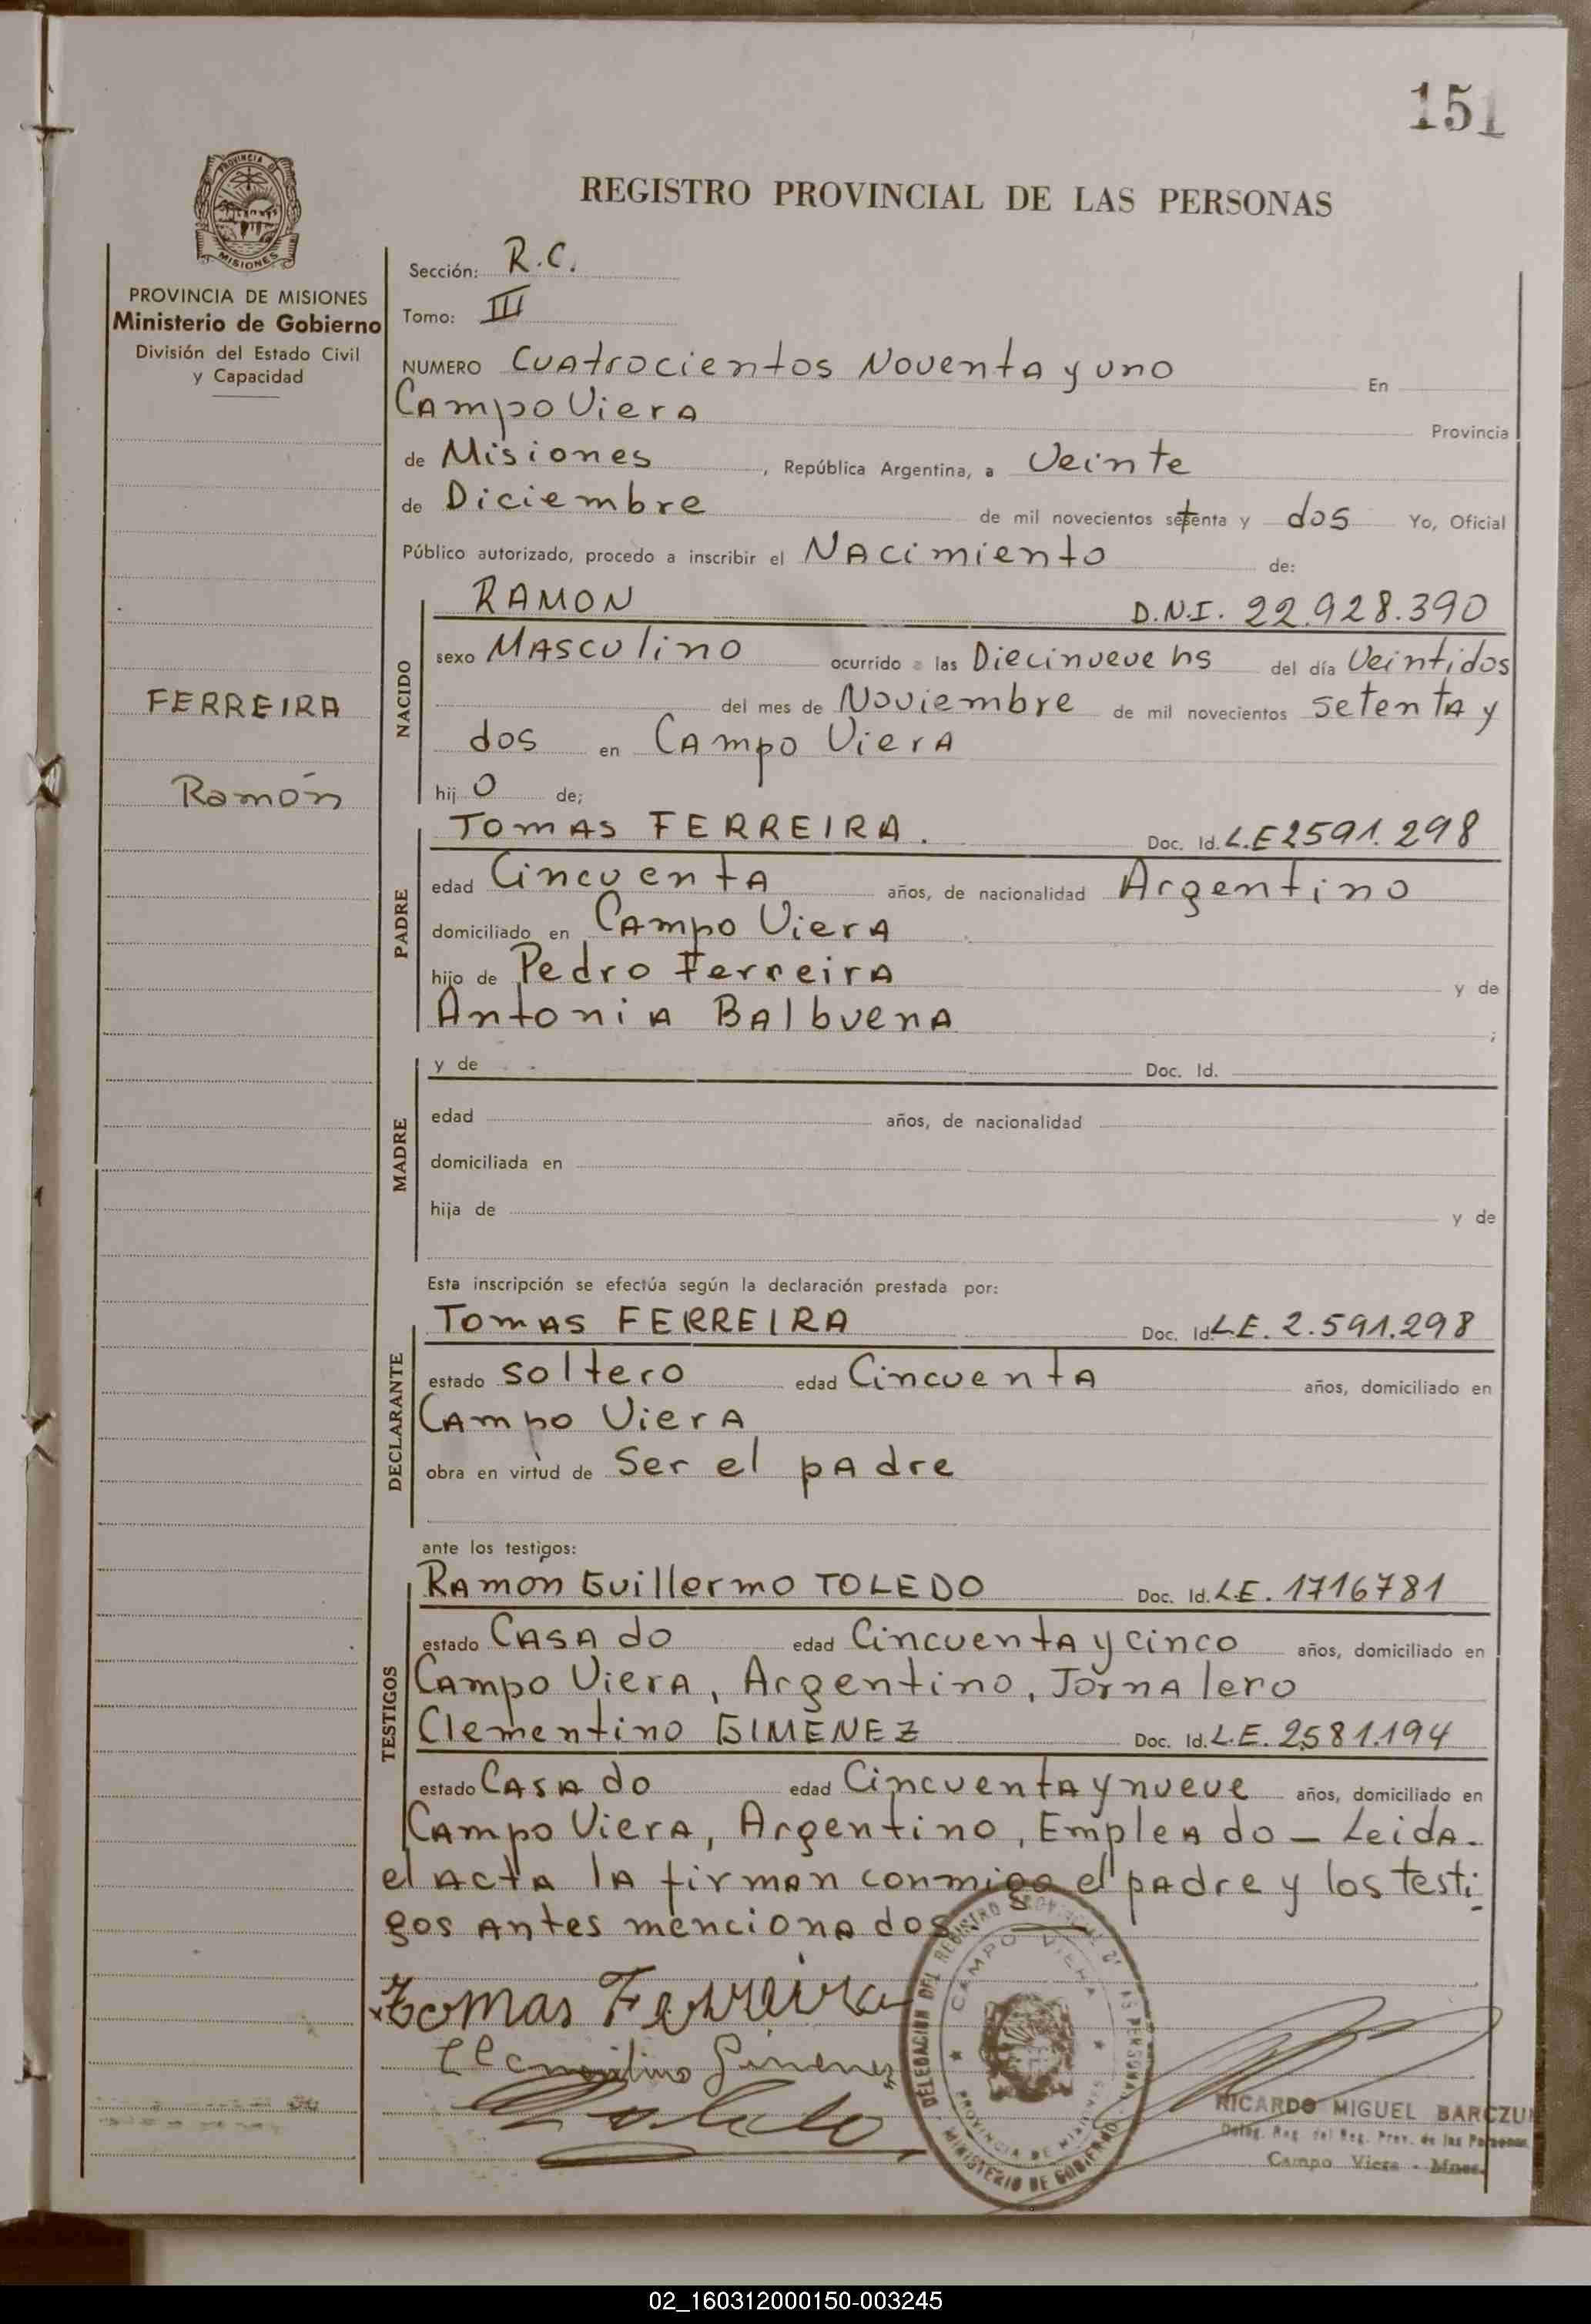 151
PROVINCIA DE
MISIONES
REGISTRO PROVINCIAL DE LAS PERSONAS
PROVINCIA DE MISIONES
Ministerio de Gobierno
División del Estado Civil
y Capacidad
FERREIRA
Ramón
Sección: R.C.
Tomo: III
NUMERO Cuatrocientos Noventa y uno En
Campo Viera Provincia
de Misiones, República Argentina, a Veinte
de Diciembre de mil novecientos setenta y dos Yo, Oficial
Público autorizado, procedo a inscribir el Nacimiento de:
NACIDO
RAMON D.N.I. 22.928.390
sexo Masculino ocurrido a las Diecinueve hs del día Veintidos
del mes de Noviembre de mil novecientos setenta y
dos en Campo Viera
hij o de;
PADRE
Tomas FERREIRA. Doc. Id. L.E 2591.298
edad Cincuenta años, de nacionalidad Argentino
domiciliado en Campo Viera
hijo de Pedro Ferreira y de
Antonia Balbuena ;
MADRE
y de Doc. Id.
edad años, de nacionalidad
domiciliada en
hija de y de
Esta inscripción se efectúa según la declaración prestada por:
DECLARANTE
Tomas FERREIRA Doc. Id. L.E. 2.591.298
estado soltero edad Cincuenta años, domiciliado en
Campo Viera
obra en virtud de Ser el padre
ante los testigos:
TESTIGOS
Ramón Guillermo TOLEDO Doc. Id. L.E. 1716781
estado Casado edad Cincuenta y cinco años, domiciliado en
Campo Viera, Argentino, Jornalero
Clementino GIMENEZ Doc. Id. L.E. 2581.194
estado Casado edad Cincuenta y nueve años, domiciliado en
Campo Viera, Argentino, Empleado - Leida-
el acta la firman conmigo el padre y los testi-
gos antes mencionados
Tomas Ferreira
Clementino Gimenez
Toledo
DELEGACION DEL REGISTRO PROVINCIAL DE LAS PERSONAS
CAMPO VIERA
PROVINCIA DE MISIONES
MINISTERIO DE GOBIERNO
RICARDO MIGUEL BARCZU
Deleg. Reg. del Reg. Prov. de las Personas
Campo Viera - Mnes.
02_160312000150-003245